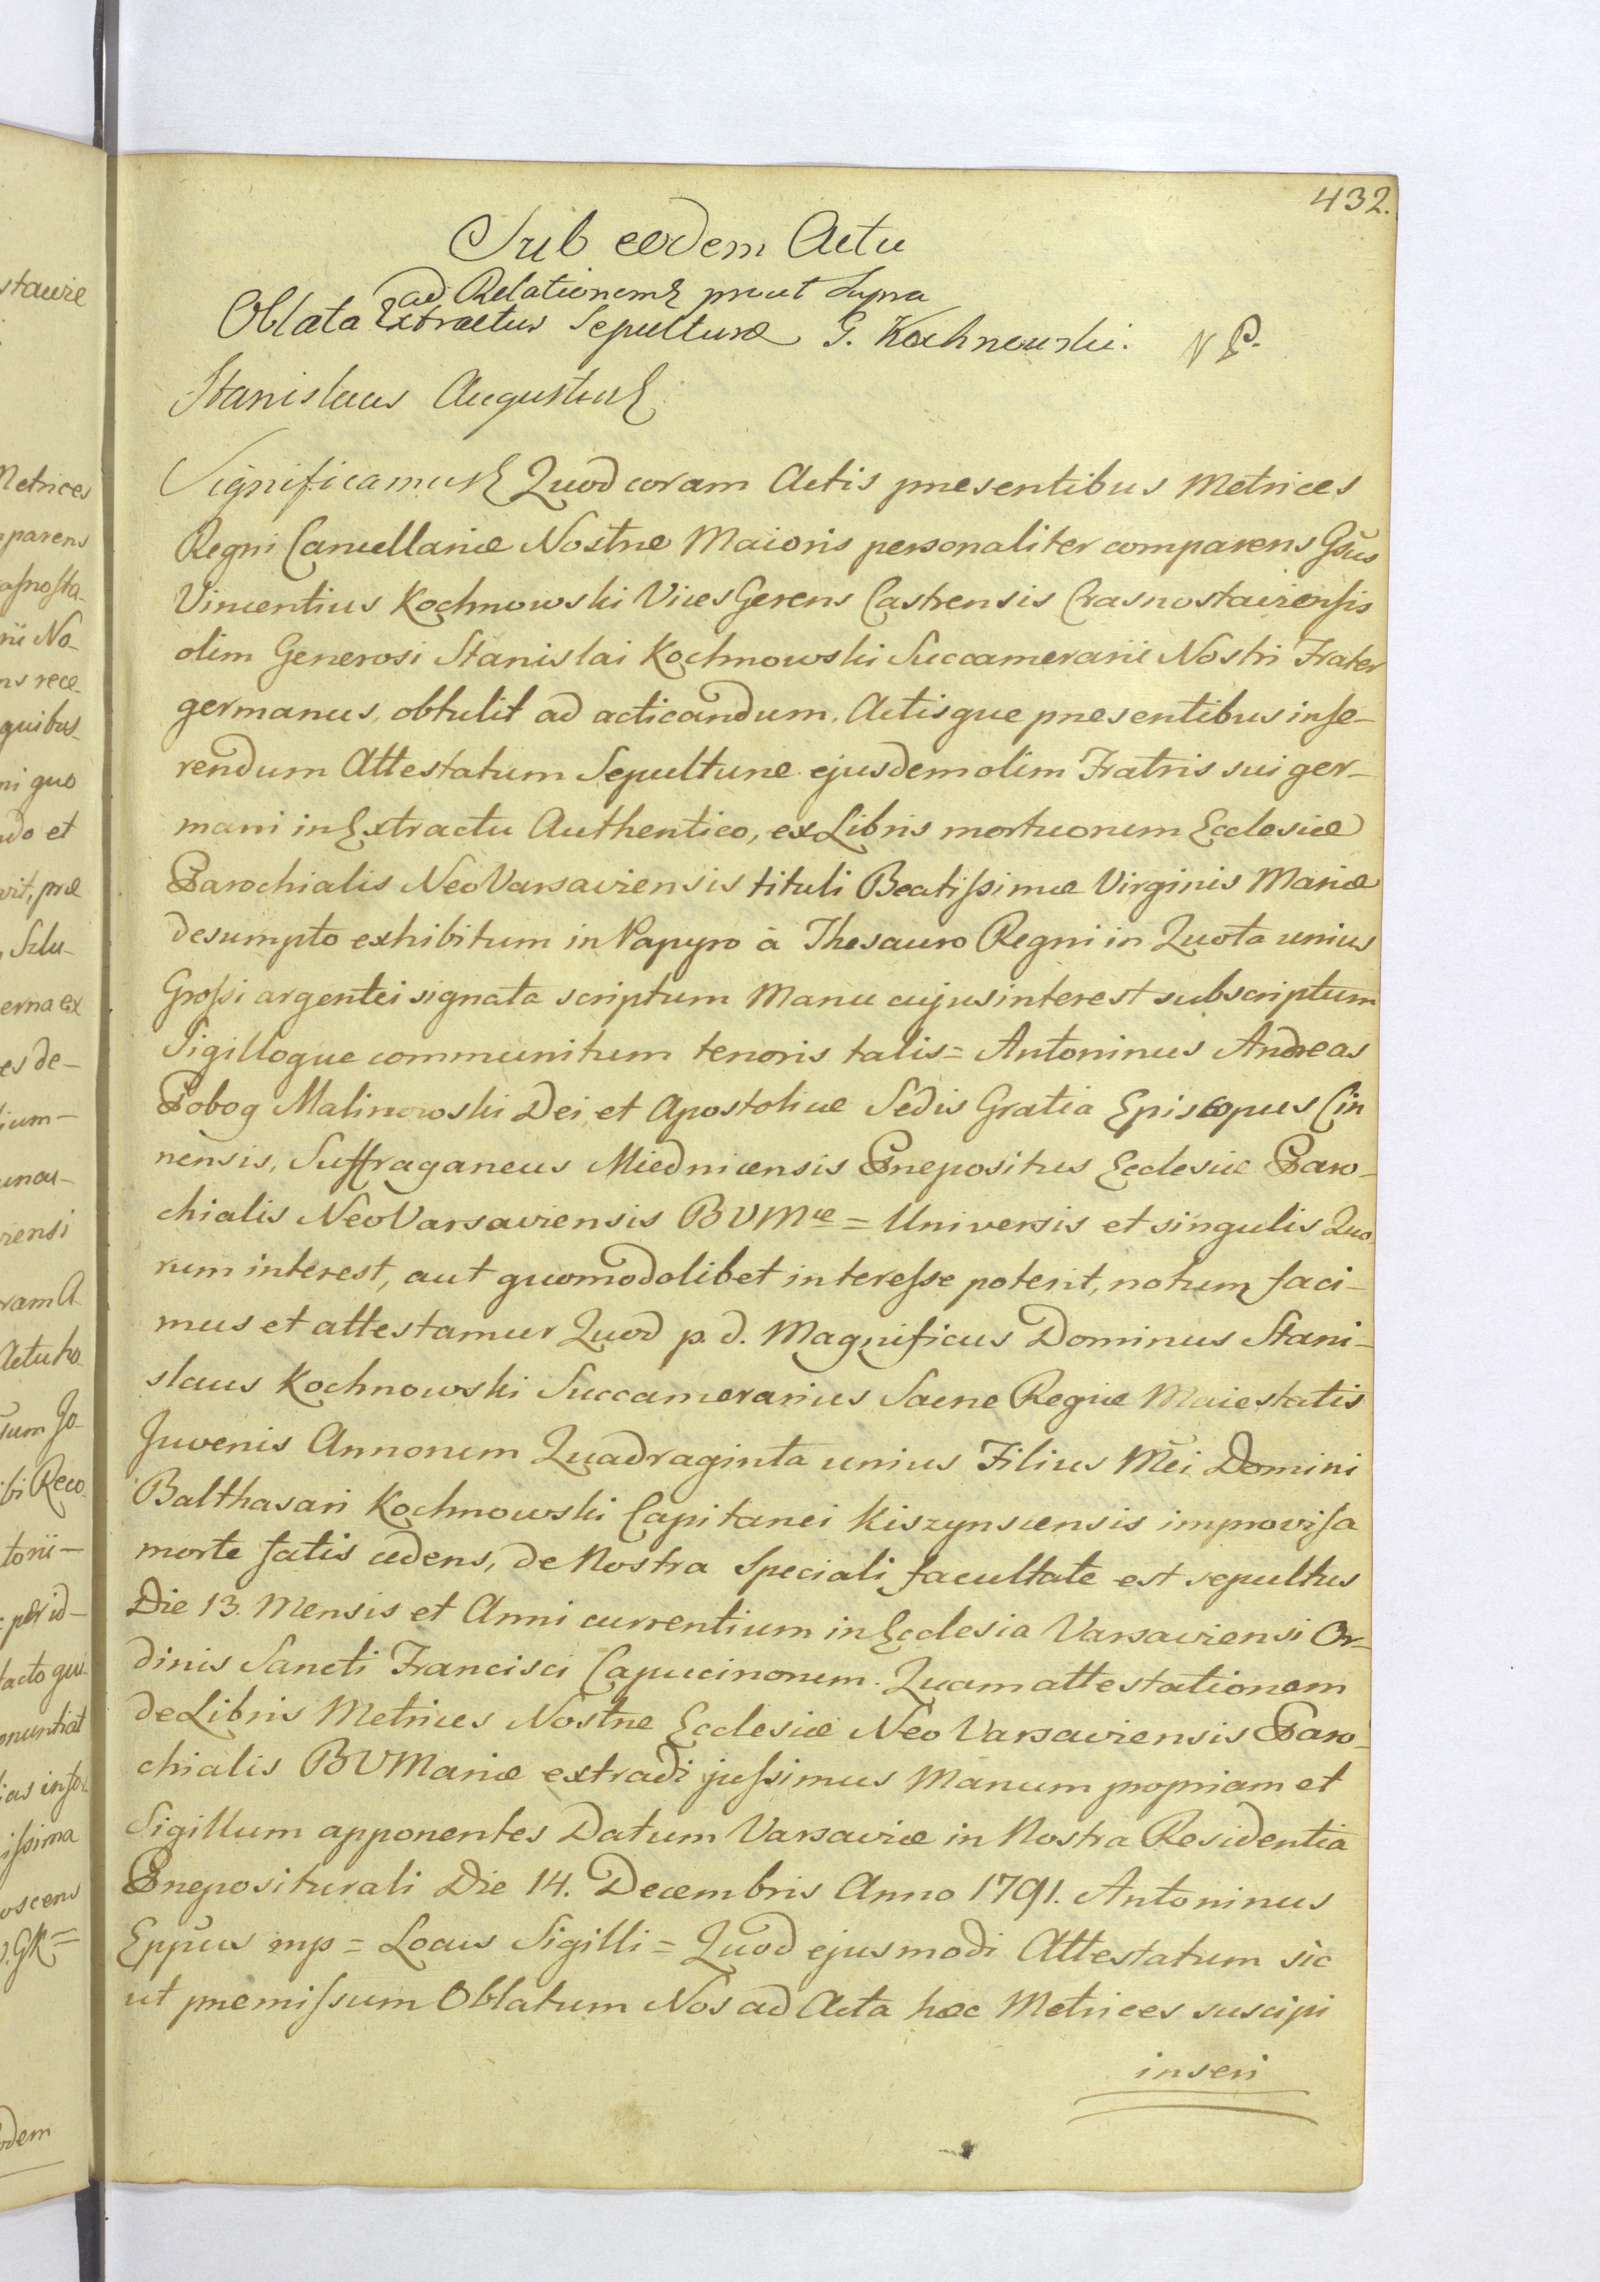 432.
Sub eodem Actu
ad Relationem prout Supra
Oblata Extractus Sepulturæ G. Kochnowski. N P.
Stanislaus Augustus
Significamus Quod coram Actis præsentibus Metrices
Regni Cancellariæ Nostræ Maioris personaliter comparens Gsūs
Vincentius Kochnowski Vices Gerens Castrensis Crasnostaviensis
olim Generosi Stanislai Kochnowski Succamerarii Nostri Frater
germanus, obtulit ad acticandum, Actisque præsentibus inse-
rendum Attestatum Sepulturæ ejusdem olim Fratris sui ger-
mani in Extractu Authentico, ex Libris mortuorum Ecclesiæ
Parochialis NeoVarsaviensis tituli Beatissimæ Virginis Mariæ
desumpto exhibitum in Papyro à Thesauro Regni in Quota unius
Grossi argentei signata scriptum Manu cujus interest subscriptum
Sigilloque communitum tenoris talis = Antoninus Andreas
Pobog Malinowski Dei et Apostolicæ Sedis Gratia Episcopus Cin
nensis, Suffraganeus Miednicensis Præpositus Ecclesiæ Paro-
chialis NeoVarsaviensis BVMæ = Universis et singulis Quo-
rum interest, aut quomodolibet interesse poterit, notum faci-
mus et attestamur Quod p. d. Magnificus Dominus Stani-
slaus Kochnowski Succamerarius Sacræ Regiæ Maiestatis
Juvenis Annorum Quadraginta unius Filius Mēi Domini
Balthasari Kochnowski Capitanei Kiszynscensis improvisa
morte fatis cedens, de Nostra Speciali facultate est sepultus
Die 13. Mensis et Anni currentium in Ecclesia Varsaviensi Or-
dinis Sancti Francisci Capucinorum. Quam attestationem
de Libris Metrices Nostræ Ecclesiæ Neo Varsaviensis Paro-
chialis BVMariæ extradi jussimus Manum propriam et
Sigillum apponentes Datum Varsaviæ in Nostra Residentia
Præpositurali Die 14. Decembris Anno 1791. Antoninus
Eppūs mp = Locus Sigilli = Quod ejusmodi Attestatum sic
ut præmissum Oblatum Nos ad Acta hæc Metrices suscipi
inseri